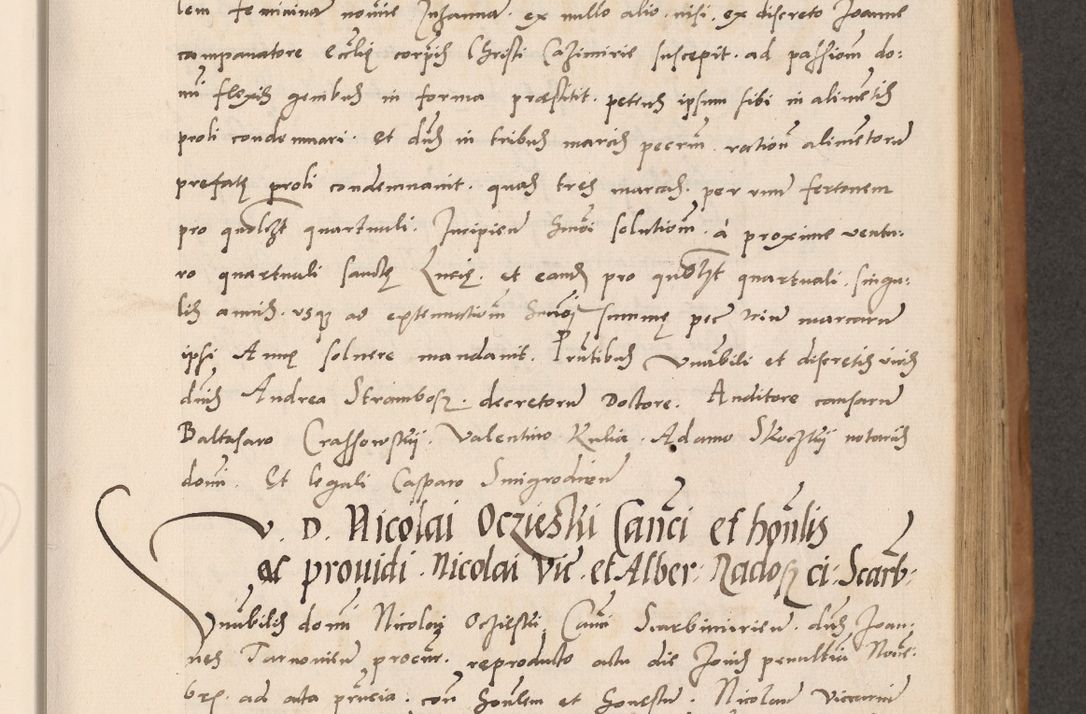 lem feminina nomine Joħanna. ex nullo alio. nisi. ex discreto Joanne
campanatore Ecclię corpīs Christi Cazimirie suscepit. ad passiom do:
mī flexis genibus in forma præstitit. petens ipsum sibi in alimētis
proli condemnari. Et dūs in tribus marcis pecrm̄. rationē alimētorū
prefatę proli condemnavit. quas tres marcas. per vnū fertonem
pro quolēt quartuali. Incipien hmōi solutionē. à proxime ventu:
ro quartuali sanctę Lucię. et eandē pro quolēt quartuali. singu:
lis annis. vsq; ad extenuationē hmōi summę pec trium marcarū
ipsi Annę solvere mandavit. Prn̄tibus Vnābili et discretis viris
dn̄is Andrea Strambosz. decretorū Doctore. Auditore causarū
Baltasaro Crassowskij. Valentino Kulia. Adamo Skoczkij notarijs
domī. Et legali Casparo Smigrodien
V. D. Nicolai Oczieski Canc̄i et honēlis
ac prouidi. Nicolai Vic. et Alber: Radosz ci: Scarb:
Vnābilis domī Nicolaj Oczieskij Canc̄i Scarbimirien. dn̄s Joan:
nes Tarnovien procūr. reproducto actu die Jovis penultimā Novē:
brs. ad acta prn̄cia. con honēlem et honestū. Nicolaum Viccarium